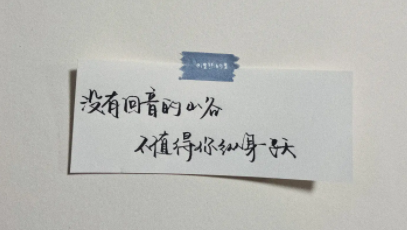 没有回音的山谷
不值得你纵身一跃